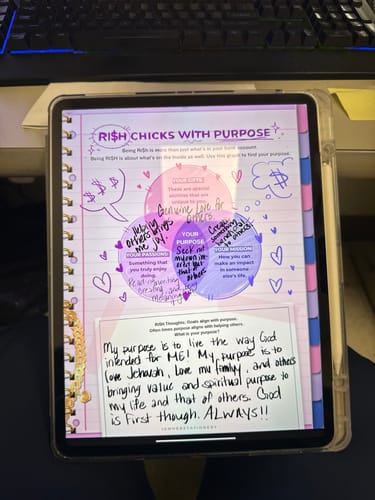 RI$H CHICKS WITH PURPOSE
Being RI$h is more than just what's in your bank account.
Being RI$h is about what's on the inside as well. Use this graph to find your purpose.
YOUR GIFTS:
These are special
abilities that are
unique to you.
Genuine love for
others
Helping
others brings
me joy
YOUR PASSIONS:
Something that
you truly enjoy
doing.
Read, journaling
creating, and
YOUR
PURPOSE
Seek not
my own in-
erest but
that of
others
Create
YOUR MISSION:
How you can
make an
impact in
someone
else's life.
RI$H Thoughts: Goals align with purpose.
Often times purpose aligns with helping others.
What is your purpose?
My purpose is to live the way God
intended for ME! My purpose is to
love Jehovah, love my family, and others
bringing value and spiritual purpose to
my life and that of others. God
is First though. ALWAYS!!